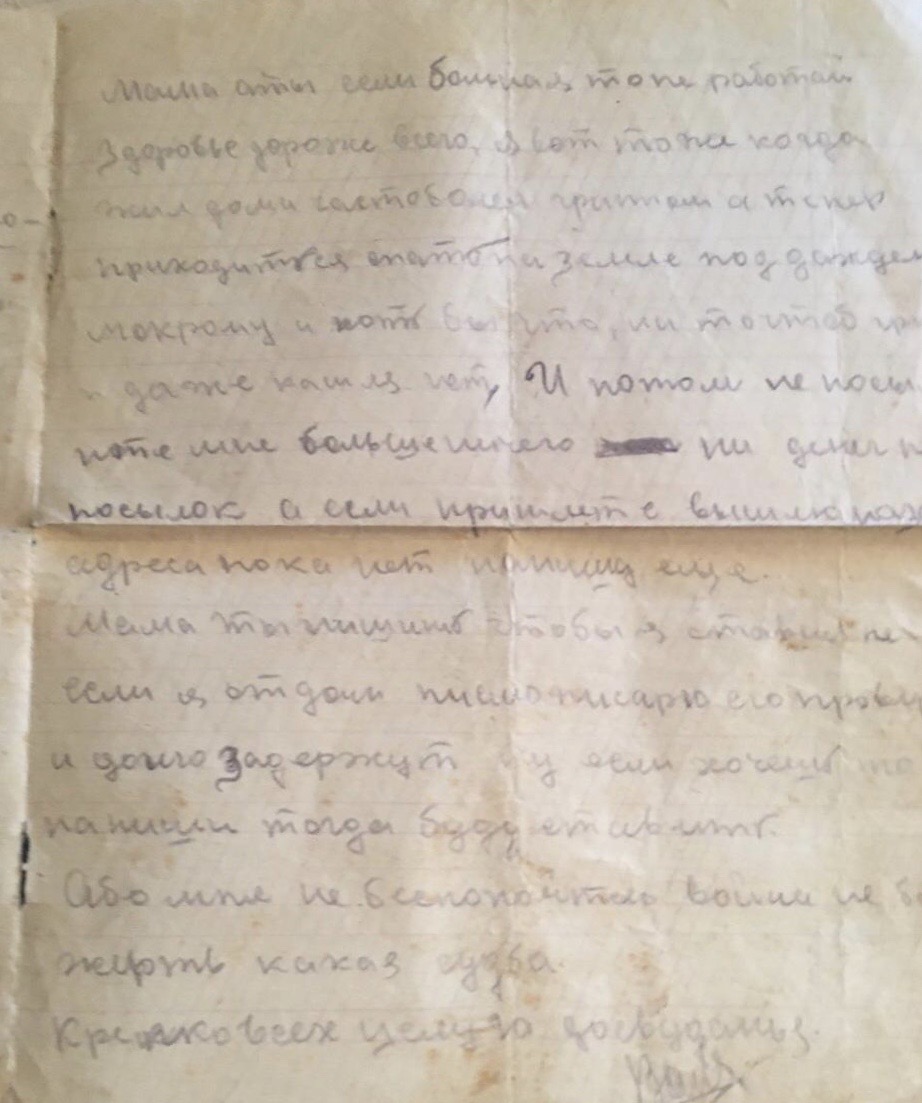 Мама аты если больная, то не работай
Здоровье дороже всего, я вот тоже когда
жил дома часто болел гриппом а тепер
приходиться спать на земле под дождем
мокрому и хоть бы што, ни
и даже кашля нет, И потом не посы
мне больше ни денег н
посылок а если пришлете вышлю наз
адреса пока нет напишу еще.
Мама ты пишишь чтобы я ставил не
если я отдам писмо писарю его прове
и долго задержут ну если хочешь то
напиши тогда буду ставить.
Або мне не беспокойтесь воина не б
жерть какая судба
Крепко всех целую досвуданья.